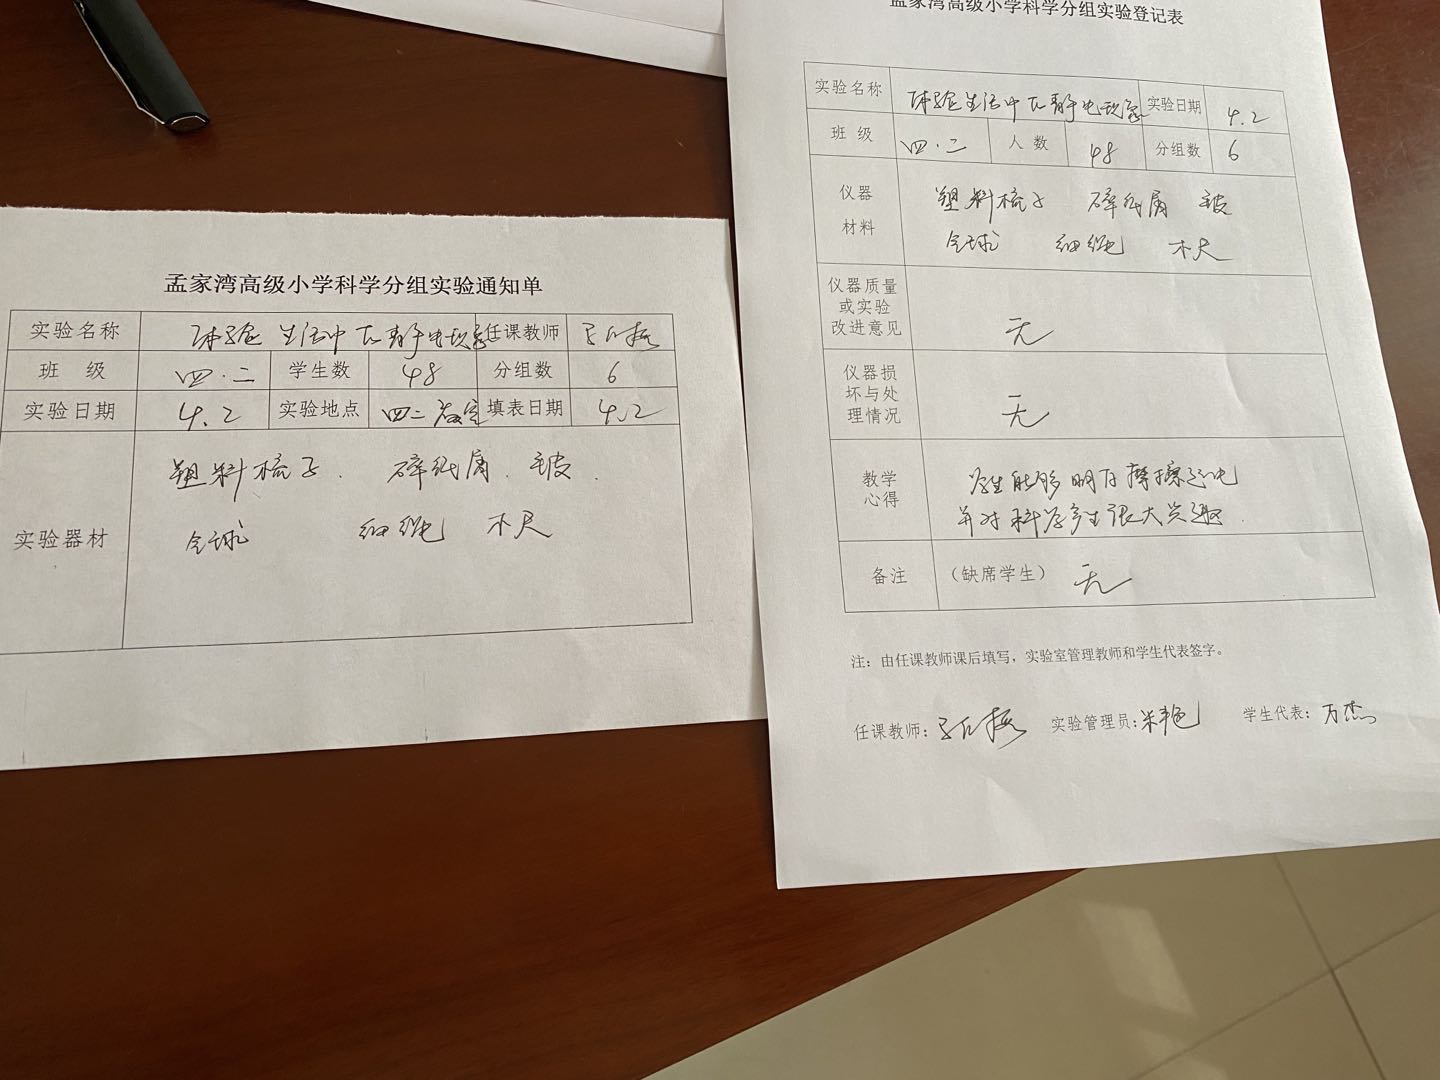 孟家湾高级小学科学分组实验通知单
实验名称 体验生活中的静电现象 任课教师
班 级 四.二 学生数 48 分组数 6
实验日期 4.2 实验地点 四二教室 填表日期 4.2
实验器材 塑料梳子. 碎纸屑.
细绳 木尺
孟家湾高级小学科学分组实验登记表
实验名称 体验生活中的静电现象 实验日期 4.2
班 级 四.二 人 数 48 分组数 6
仪器材料 塑料梳子 碎纸屑
细绳 木尺
仪器质量
或实验
改进意见 无
仪器损
坏与处
理情况 无
教学
心得 学生能够明白摩擦起电
并对科学产生很大兴趣.
备注 (缺席学生) 无
注：由任课教师课后填写，实验室管理教师和学生代表签字。
任课教师： 实验管理员： 学生代表：万杰